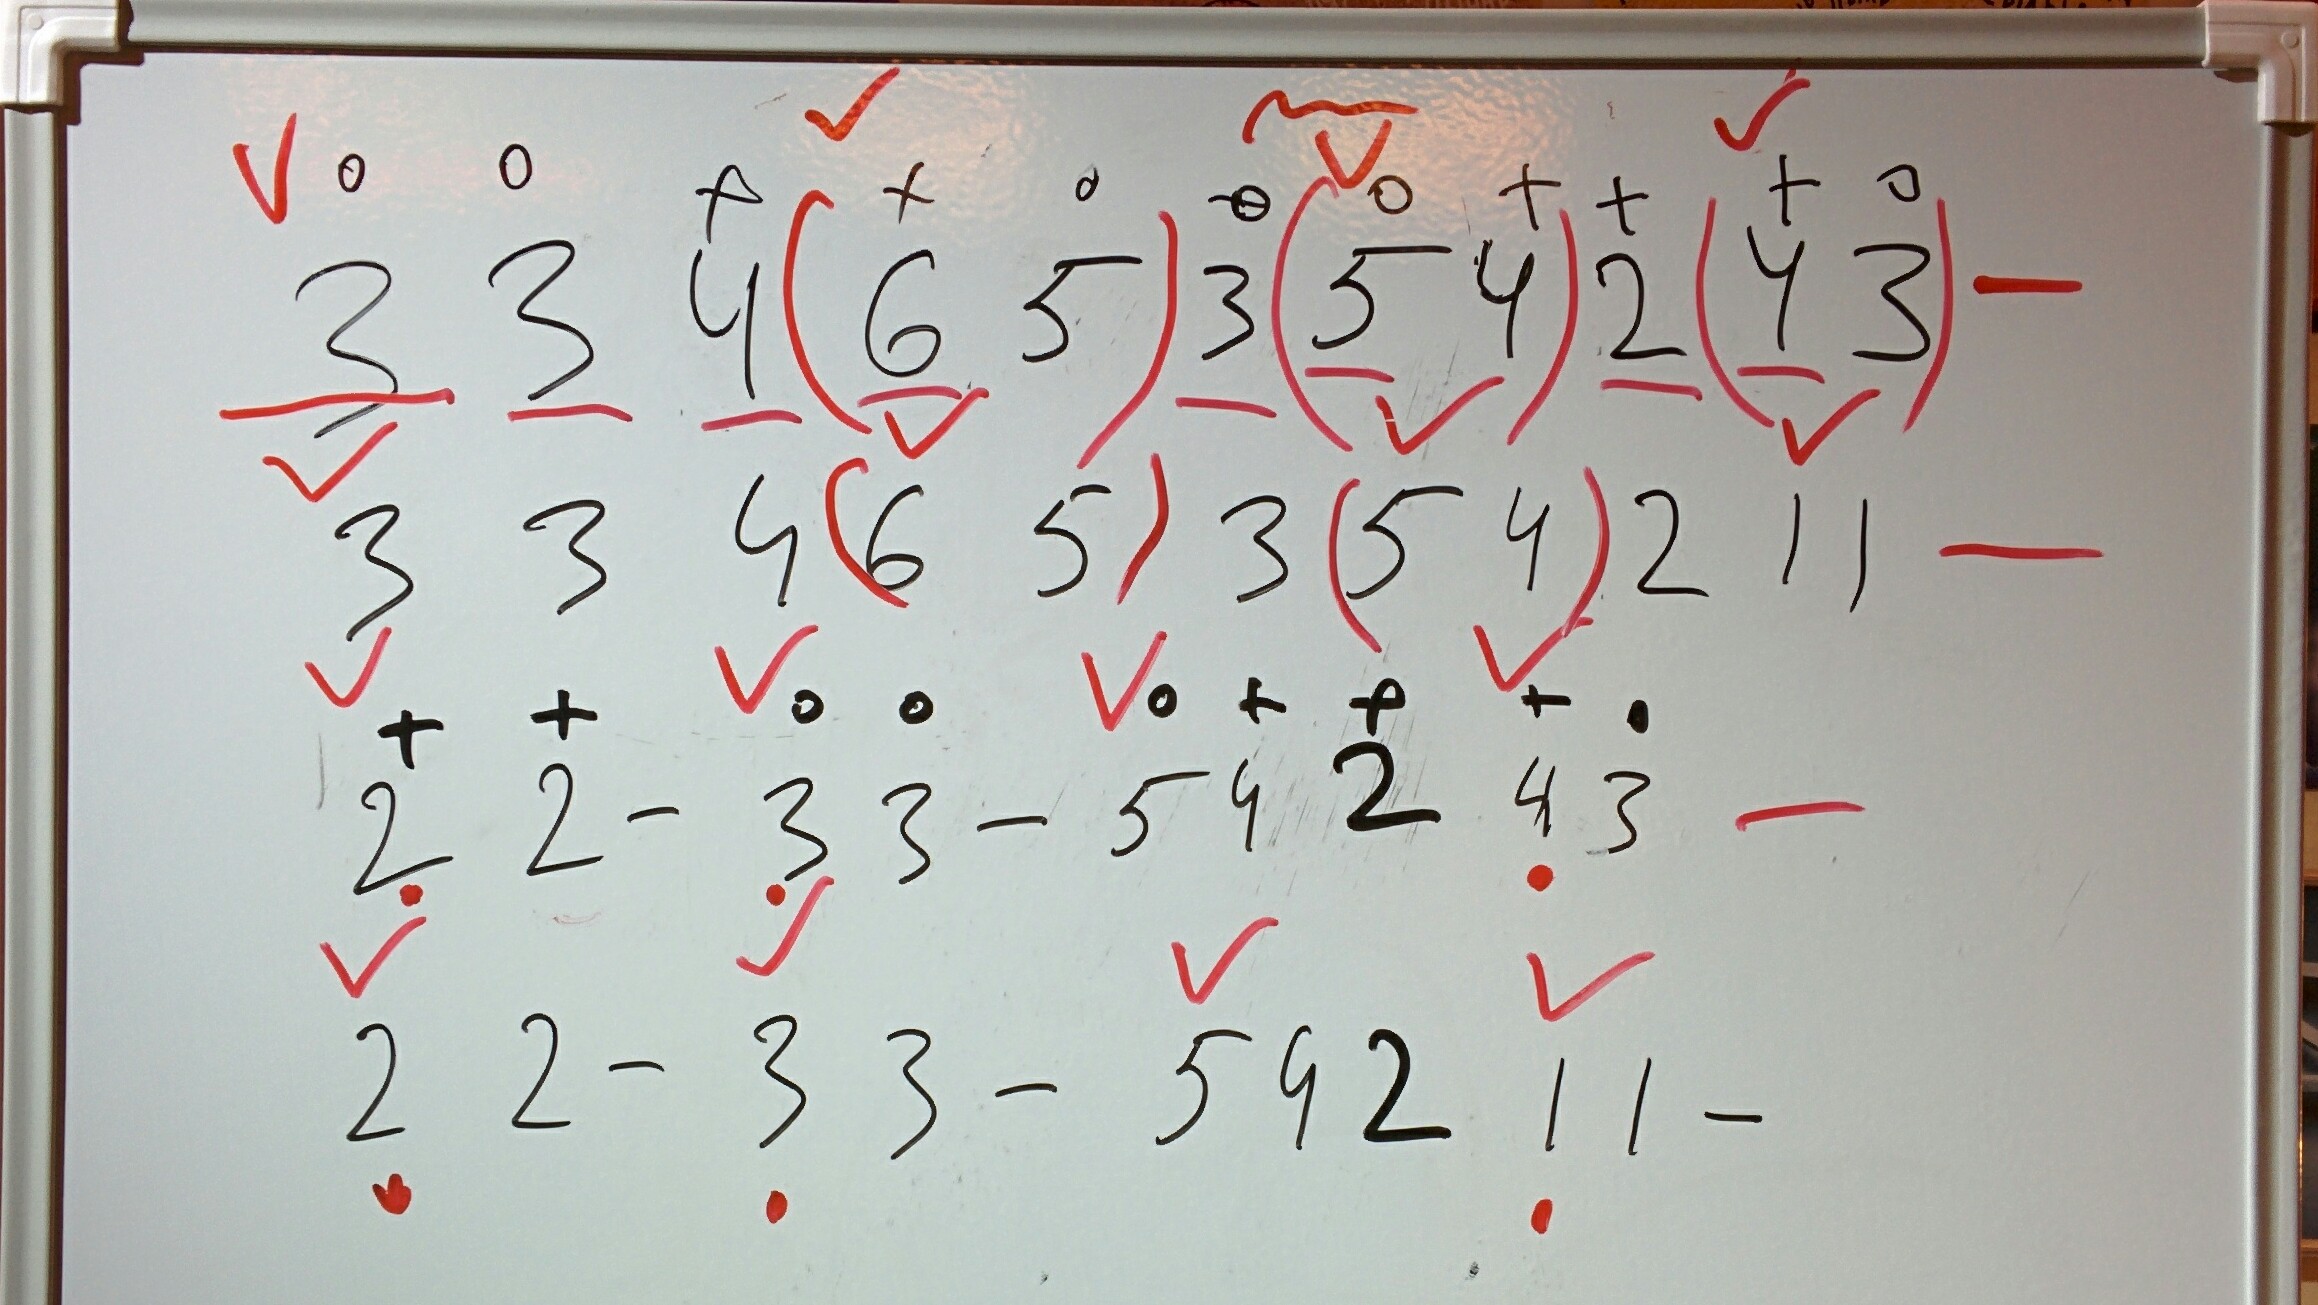 ✓ o o + ✓ + o o ✓ o + + ✓ + o
3 3 4 (6 5) 3 (5 4) 2 (4 3) —
✓ ✓ ✓ ✓
3 3 4 (6 5) 3 (5 4) 2 1 1 —
✓ + + ✓ o o ✓ o + + ✓ + o
2 2 – 3 3 – 5 4 2 4 3 —
✓ ✓ ✓ ✓
2 2 – 3 3 – 5 4 2 1 1 –